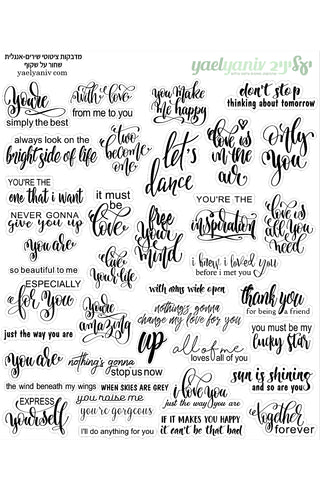 מדבקות ציטוטי שירים-אנגלית
שחור על שקוף
yaelyaniv.com
yaelyaniv יעליניב
You're
simply the best
with love
from me to you
you make
me happy
don't stop
thinking about tomorrow
always look on the
bright side of life
two
become
one
let's
dance
love
is
in the
air
only
you
YOU'RE THE
one that i want
it must
be
love
NEVER GONNA
give you up
free
your
mind
YOU'RE THE
inspiration
love is
all you
need
you are
so beautiful to me
live
your life
i knew i loved you
before i met you
ESPECIALLY
for you
you're
amazing
with arms wide open
nothing's gonna
change my love for you
thank you
for being a friend
just the way you are
up
all of me
loves all of you
you must be my
lucky star
you are
the wind beneath my wings
nothing's gonna
stop us now
WHEN SKIES ARE GREY
sun is shining
and so are you
EXPRESS
yourself
you raise me
you're gorgeous
I'll do anything for you
i love you
just the way you are
IF IT MAKES YOU HAPPY
it can't be that bad
together
forever